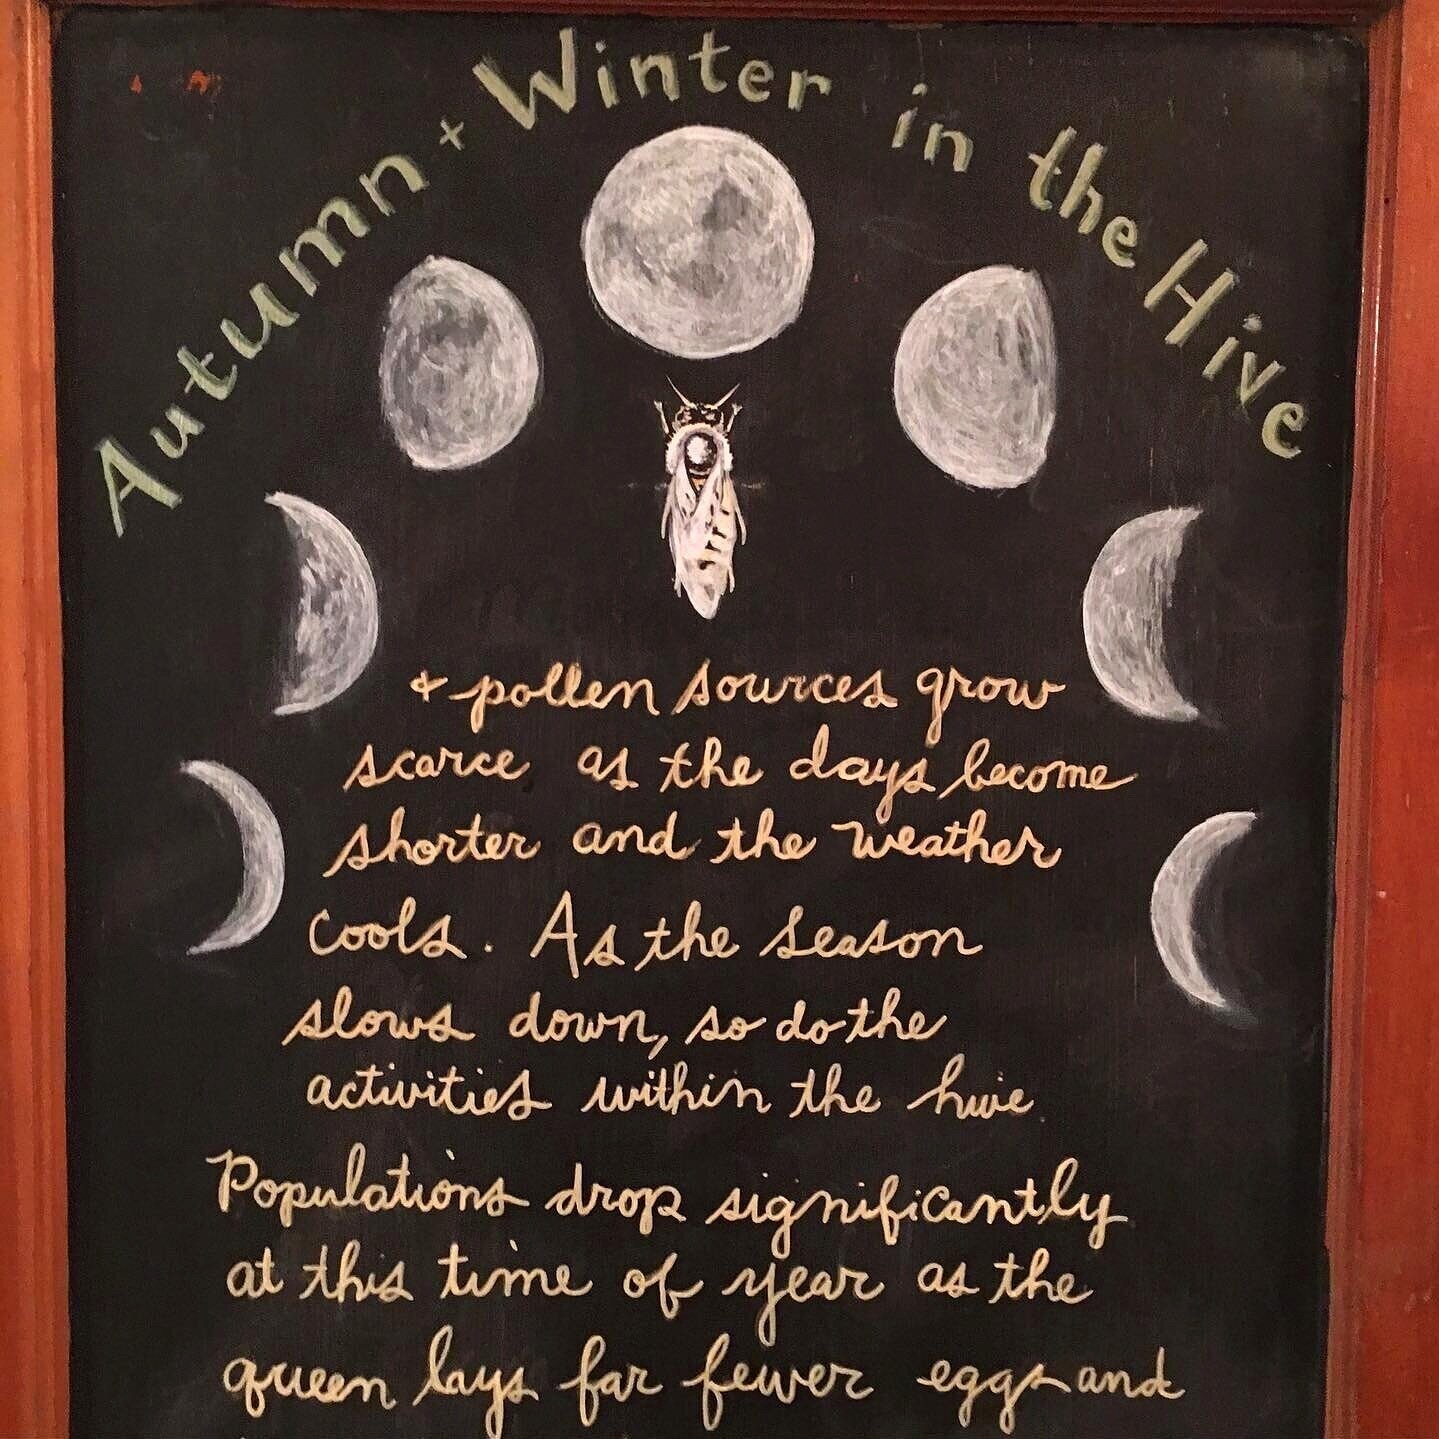 Autumn + Winter in the Hive
+ pollen sources grow
scarce as the days become
shorter and the weather
cools. As the season
slows down, so do the
activities within the hive.
Populations drop significantly
at this time of year as the
queen lays far fewer eggs and